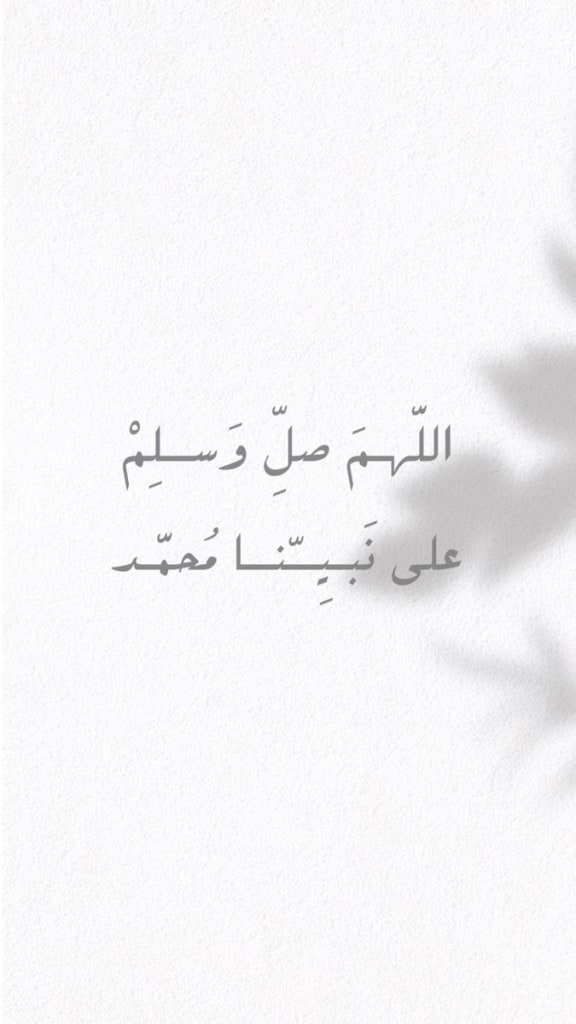 اللّهمَ صلِّ وَسلِمْ
على نَبيِّنا مُحمّد